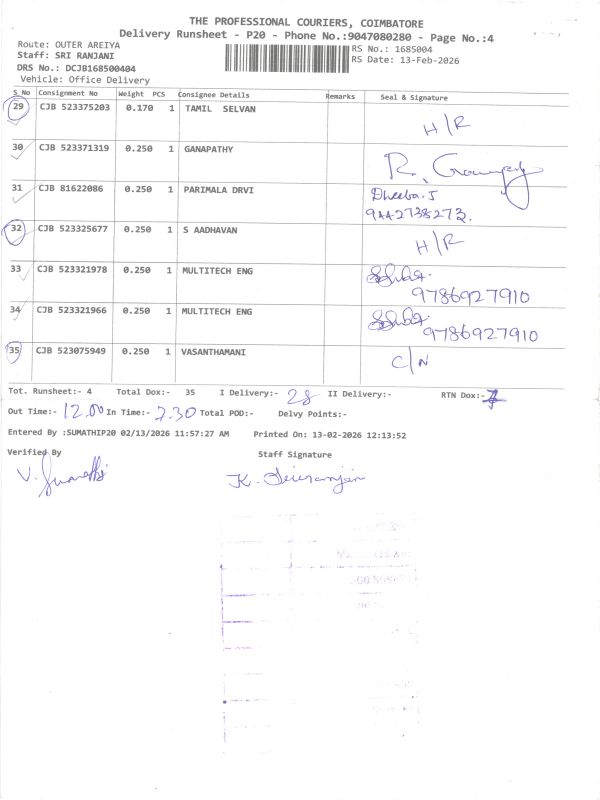 THE PROFESSIONAL COURIERS, COIMBATORE
Delivery Runsheet - P20 - Phone No.:9047080280 - Page No.:4
Route: OUTER AREIYA
RS No.: 1685004
Staff: SRI RANJANI
RS Date: 13-Feb-2026
DRS No.: DCJB168500404
Vehicle: Office Delivery
S_No Consignment No Weight PCS Consignee Details Remarks Seal & Signature
29 CJB 523375203 0.170 1 TAMIL SELVAN H/R
30 CJB 523371319 0.250 1 GANAPATHY R.
31 CJB 81622086 0.250 1 PARIMALA DRVI Dheeba.J
9442738273.
32 CJB 523325677 0.250 1 S AADHAVAN H/R
33 CJB 523321978 0.250 1 MULTITECH ENG
9786927910
34 CJB 523321966 0.250 1 MULTITECH ENG
9786927910
35 CJB 523075949 0.250 1 VASANTHAMANI C/N
Tot. Runsheet:- 4 Total Dox:- 35 I Delivery:- 28 II Delivery:- RTN Dox:- 7
Out Time:- 12.00 In Time:- 2.30 Total POD:- Delvy Points:-
Entered By :SUMATHIP20 02/13/2026 11:57:27 AM Printed On: 13-02-2026 12:13:52
Verified By Staff Signature
V. K.